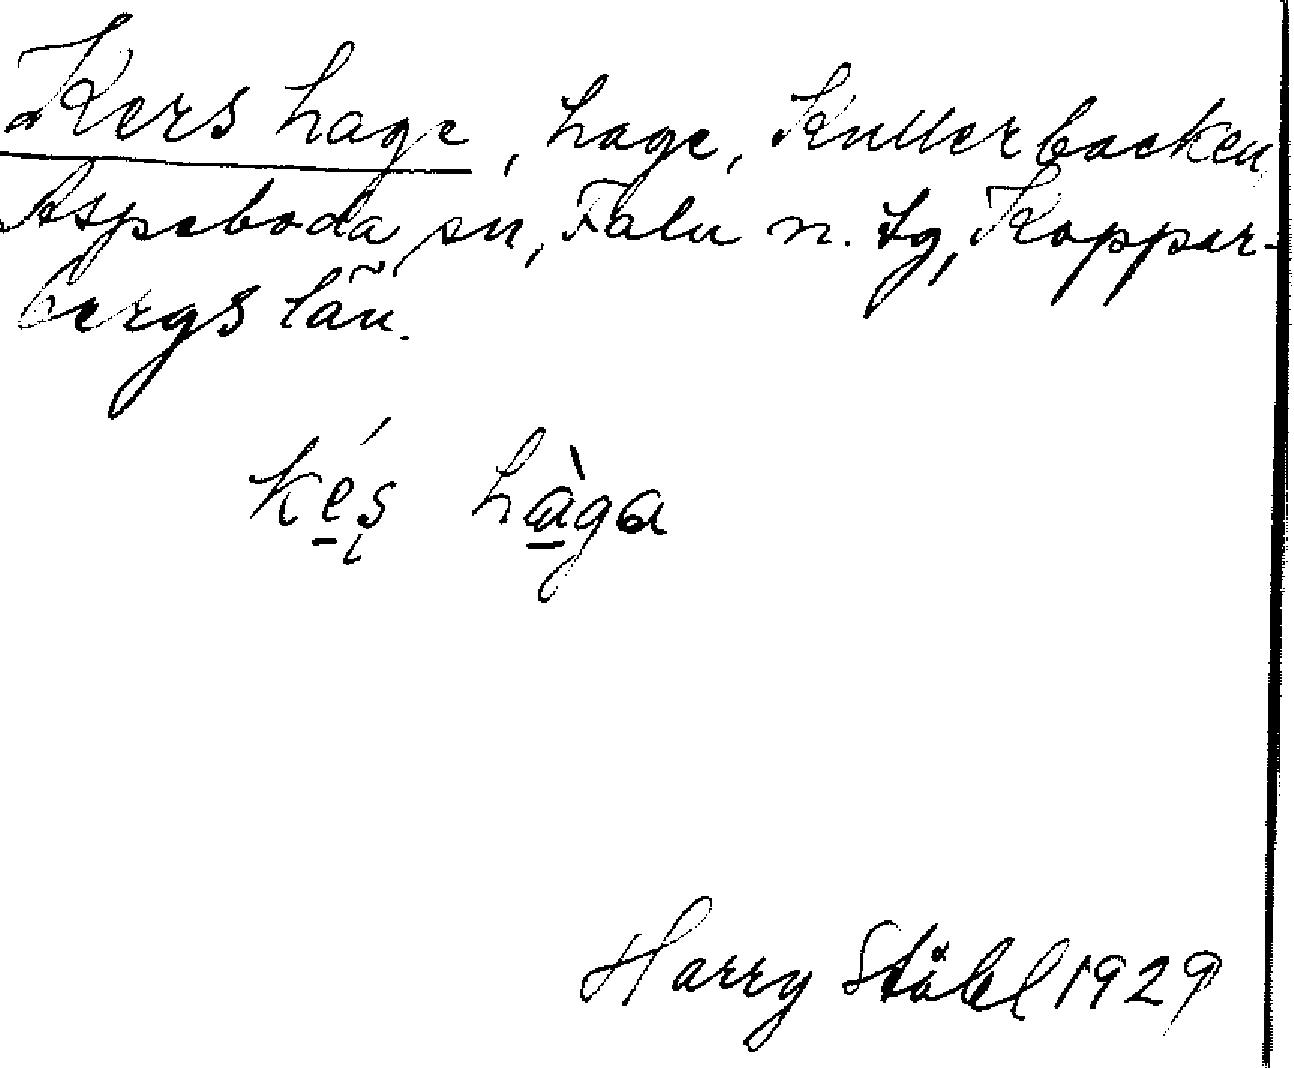 Kers hage, hage, Kullerbacken,
Aspeboda sn, Falu n. tg, Koppar-
bergs län.
kés hàga
Harry Ståhl 1929